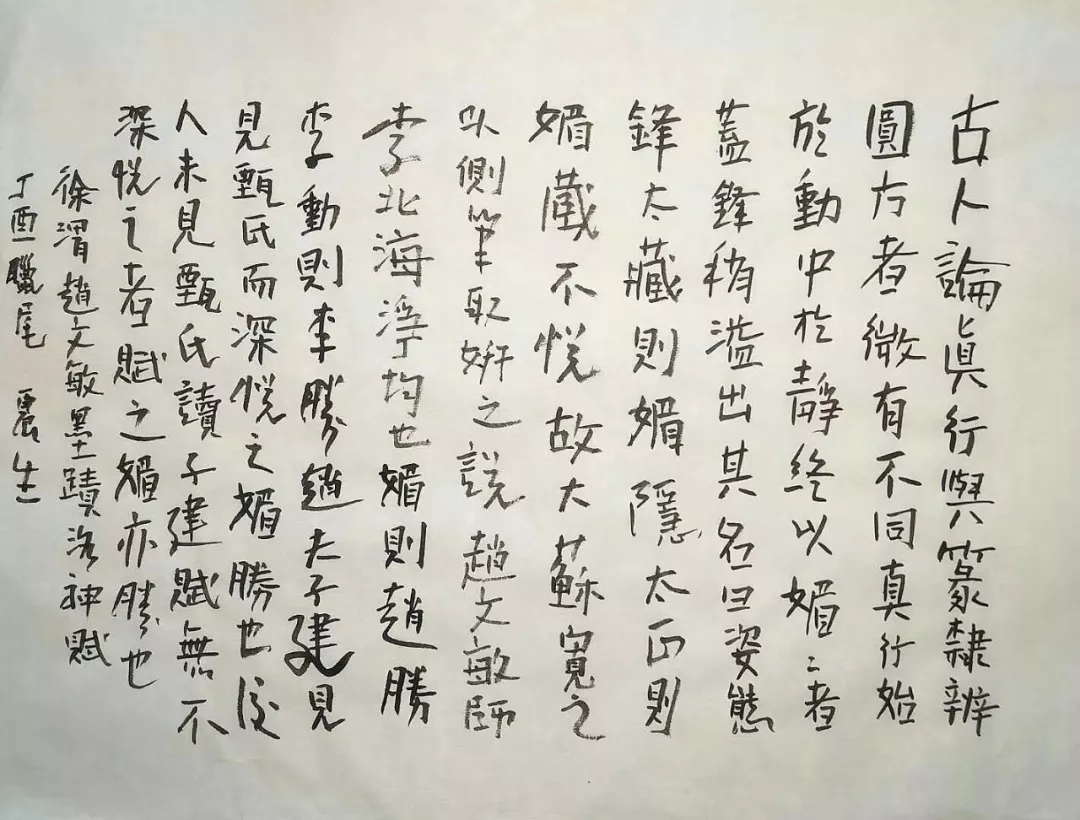 古人論真行與篆隸辨
圓方者微有不同真行始
於動中於靜終以媚媚者
蓋鋒稍溢出其名曰姿態
鋒太藏則媚隱太正則
媚藏不悅故大蘇寬之
以側筆取妍之說趙文敏師
李北海淨均也媚則趙勝
李動則李勝趙夫子建見
見甄氏而深悅之媚勝也後
人未見甄氏讀子建賦無不
深悅之者賦之媚亦勝也
徐渭趙文敏墨蹟洛神賦
丁酉臘尾 震生